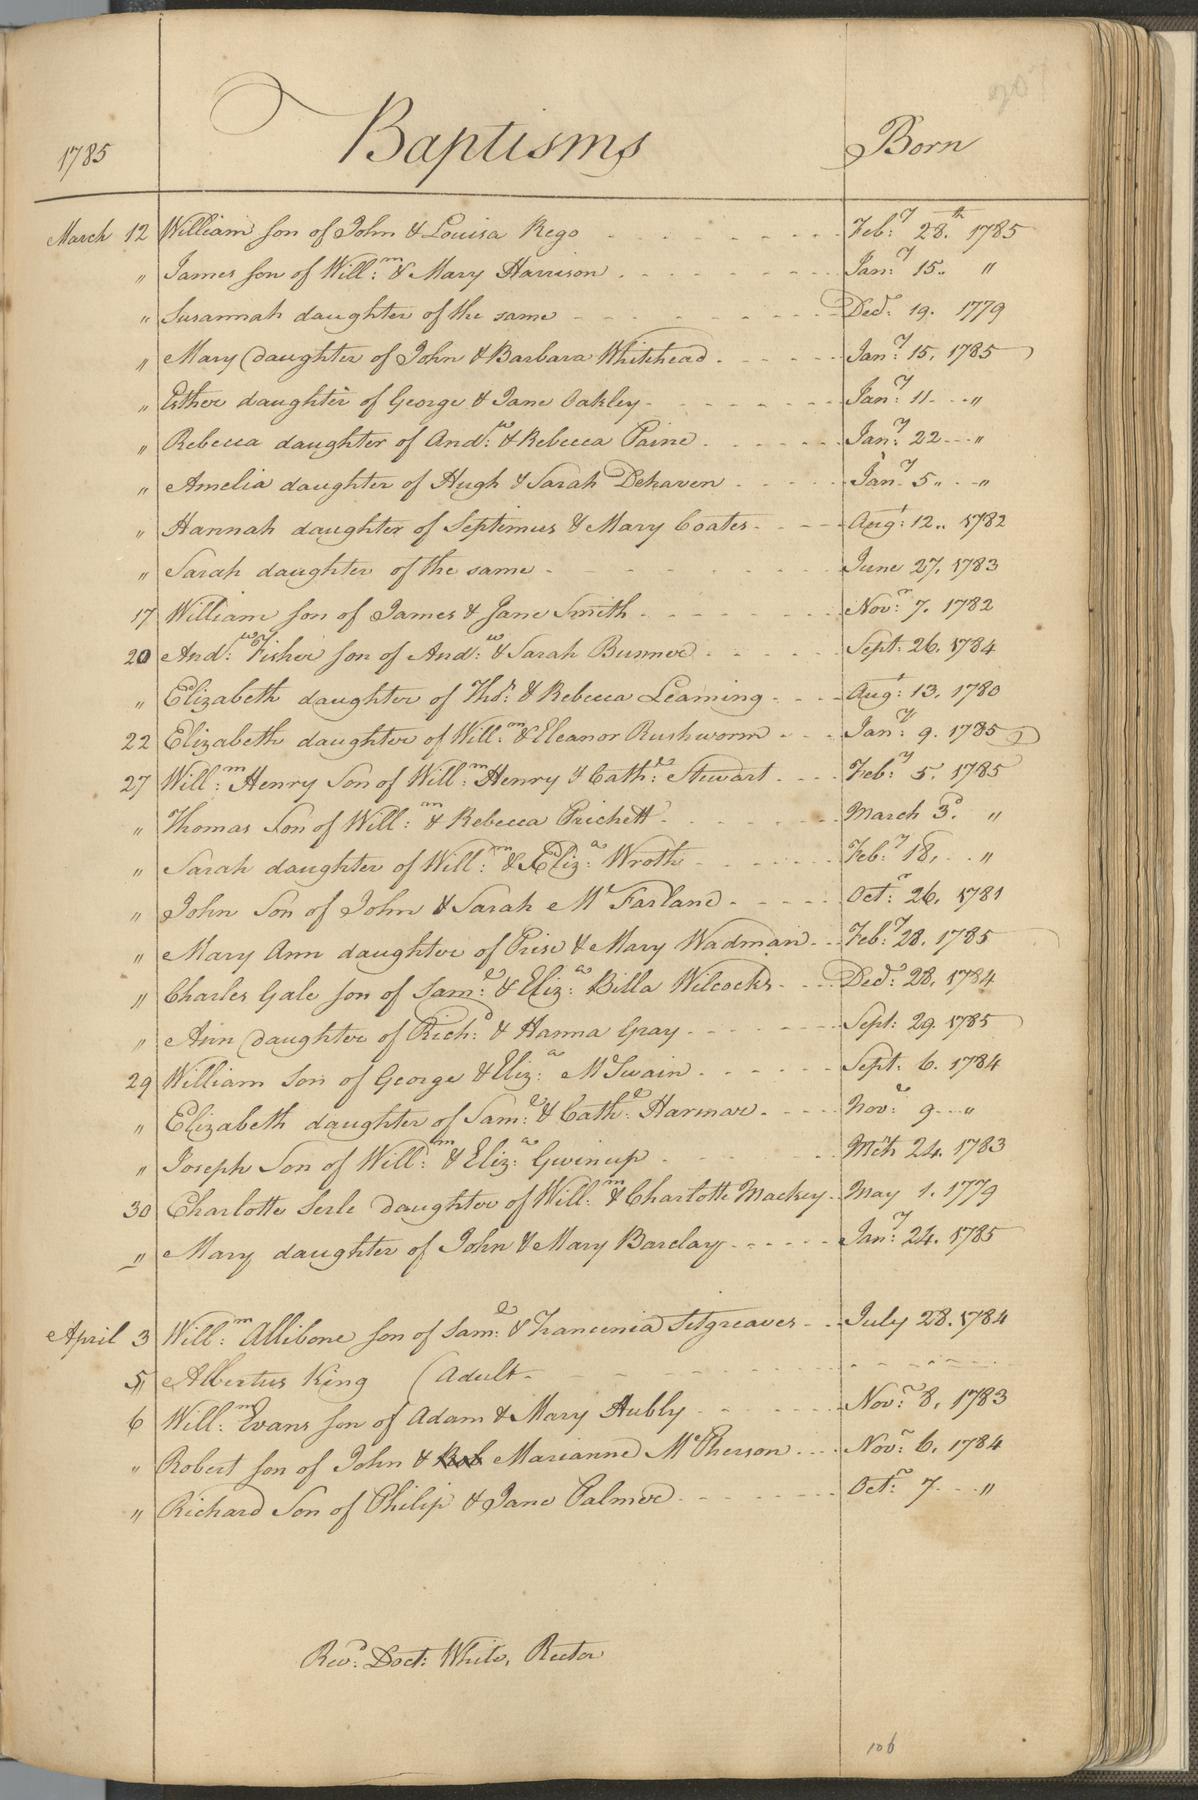 207
1785 Baptisms Born
March 12 William son of John & Louisa Rego Feb:y 28.th 1785
" James son of Will:m & Mary Harrison Jan:y 15.. "
" Susannah daughter of the same Dec.r 19. 1779
" Mary daughter of John & Barbara Whitehead Jan:y 15. 1785
" Esther daughter of George & Jane Oakley Jan:y 11 "
" Rebecca daughter of And:w & Rebecca Paine Jan:y 22 "
" Amelia daughter of Hugh & Sarah Dehaven Jan:y 5.. "
" Hannah daughter of Septimus & Mary Coates Aug:t 12.. 1782
" Sarah daughter of the same June 27. 1783
17 William son of James & Jane Smith Nov:r 7. 1782
20 And:w Fisher son of And:w & Sarah Bunner Sept: 26. 1784
" Elizabeth daughter of Tho:s & Rebecca Leaming Aug:t 13. 1780
22 Elizabeth daughter of Will:m & Eleanor Rushworm Jan:y 9. 1785
27 Will:m Henry Son of Will:m Henry & Cath:e Stewart Feb:y 5. 1785
" Thomas Son of Will:m & Rebecca Prichett March 3.d "
" Sarah daughter of Will:m & Eliz:a Wroth Feb:y 18. "
" John Son of John & Sarah Mc Farland Oct:r 26. 1781
" Mary Ann daughter of Prise & Mary Wadman Feb:y 28. 1785
" Charles Gale son of Sam:l & Eliz:a Billa Wilcocks Dec:r 28. 1784
" Ann daughter of Rich:d & Hanna Gray Sept: 29. 1785
29 William Son of George & Eliz:a McSwain Sept: 6. 1784
" Elizabeth daughter of Sam:l & Cath:e Harmar Nov:r 9 "
" Joseph Son of Will:m & Eliz:a Gwinup Mch 24. 1783
30 Charlotte Serle daughter of Will:m & Charlotte Mackey May 1. 1779
" Mary daughter of John & Mary Barclay Jan:y 24. 1785
April 3 Will:m Allibone son of Sam:l & Francinia Sitgreaves July 28. 1784
5 Albertus King (Adult
6 Will:m Evans son of Adam & Mary Hubly Nov:r 8. 1783
" Robert son of John & Rob Marianne McPherson Nov:r 6. 1784
" Richard Son of Philip & Jane Palmer Oct:r 7 "
Rev:d Doct: White, Rector
106